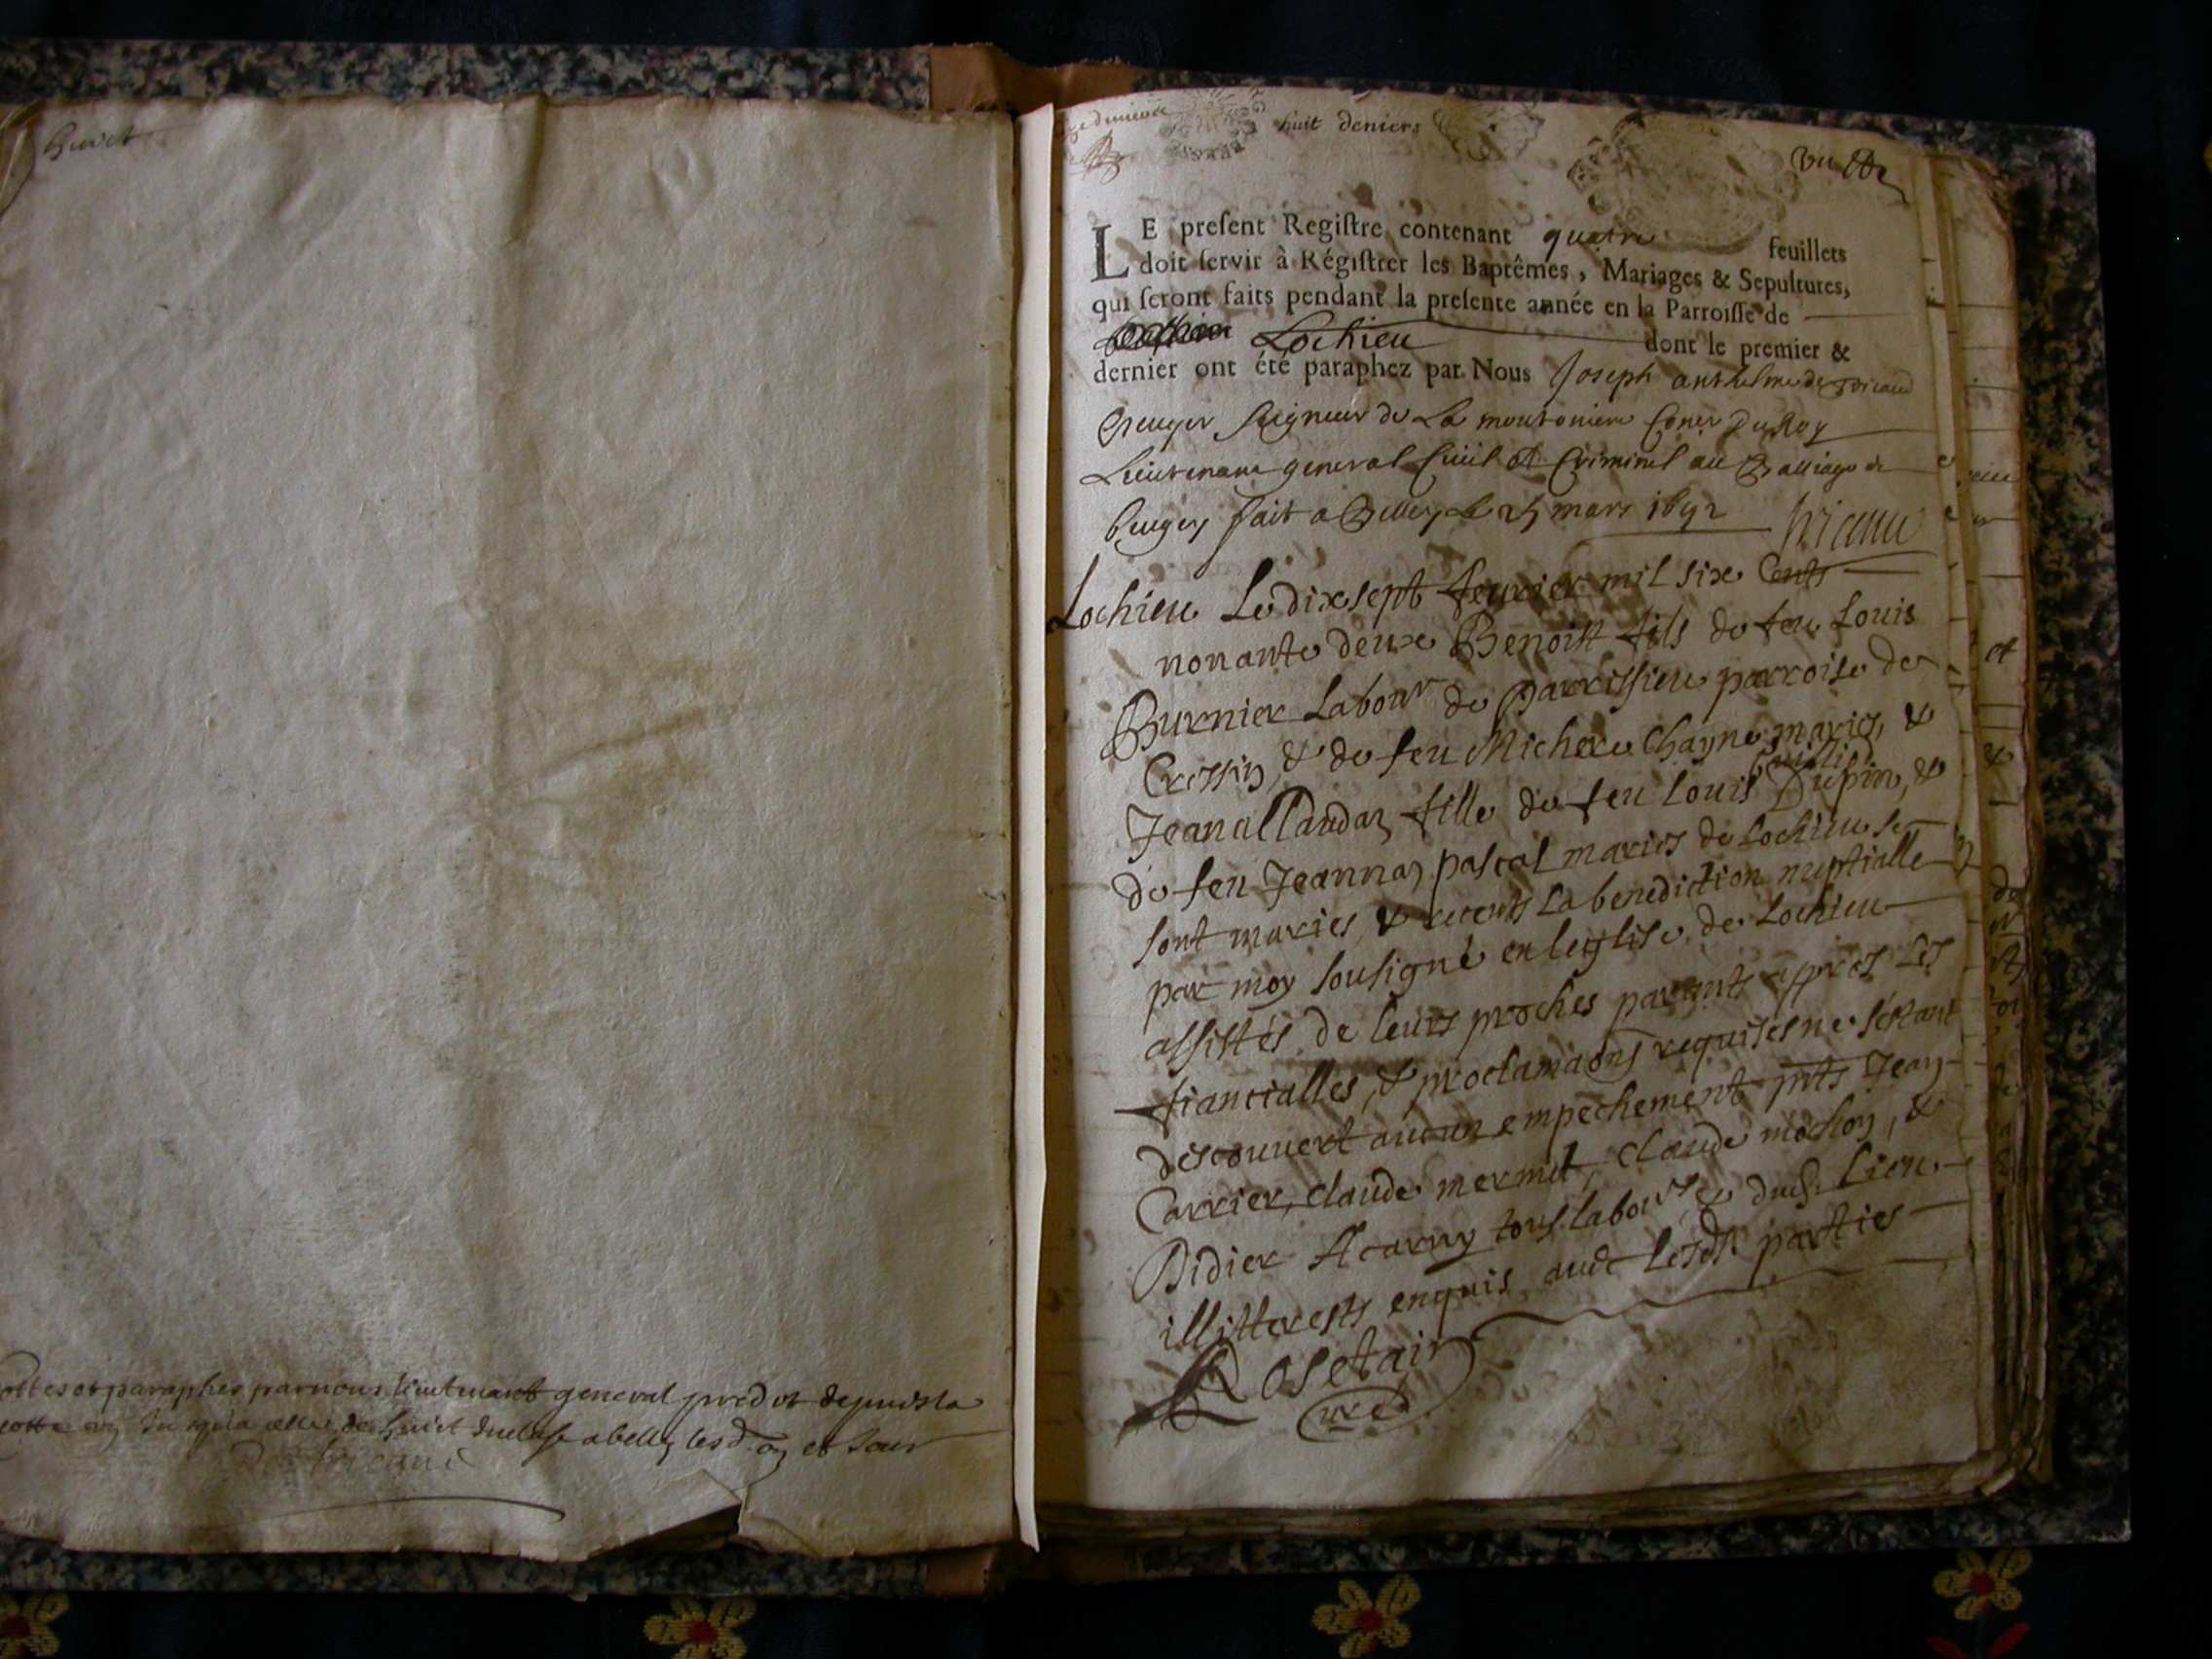 huict
cottes et paraphes par nous lieutenant general depuis la
cotte jusqua celle de huict
huit deniers
un
LE preſent Regiſtre contenant quatre feuillets
doit ſervir à Régiſtrer les Baptêmes, Mariages & Sepultures,
qui ſeront faits pendant la preſente année en la Parroiſſe de
Lochieu dont le premier &
dernier ont été paraphez par Nous Joseph anthelme de tricaud
Seigneur de La moutoniere Coner Du Roy
Lieutenant general Ciuil et Criminel au Balliage de
beugey fait a Belley Le mars 1692
tricaud
Lochieu Le dix sept feurier mil six Cents
nonante deux Benoist fils de feu Louis
Burnier Labour de parrissieu parroise de
Cressin, & de feu Michere Chayne maries, &
Jeana Claudaz fille de feu Louis Dupin, &
de feu Jeannaz pascal maries de Lochieu se
sont maries, & receuts La benediction nuptialle
par moy sousigné en leglise de Lochieu
assistés de leurs proches parents appres Les
fiancialles, & proclamaons requises ne sestant
descouuert aucun empechement pnts Jean
Carrier, claude mermet, claude mochon, &
Didier Acarry tous labours, & dud. Lieu
illitterests enquis auec lesds parties
Rosetain
curé